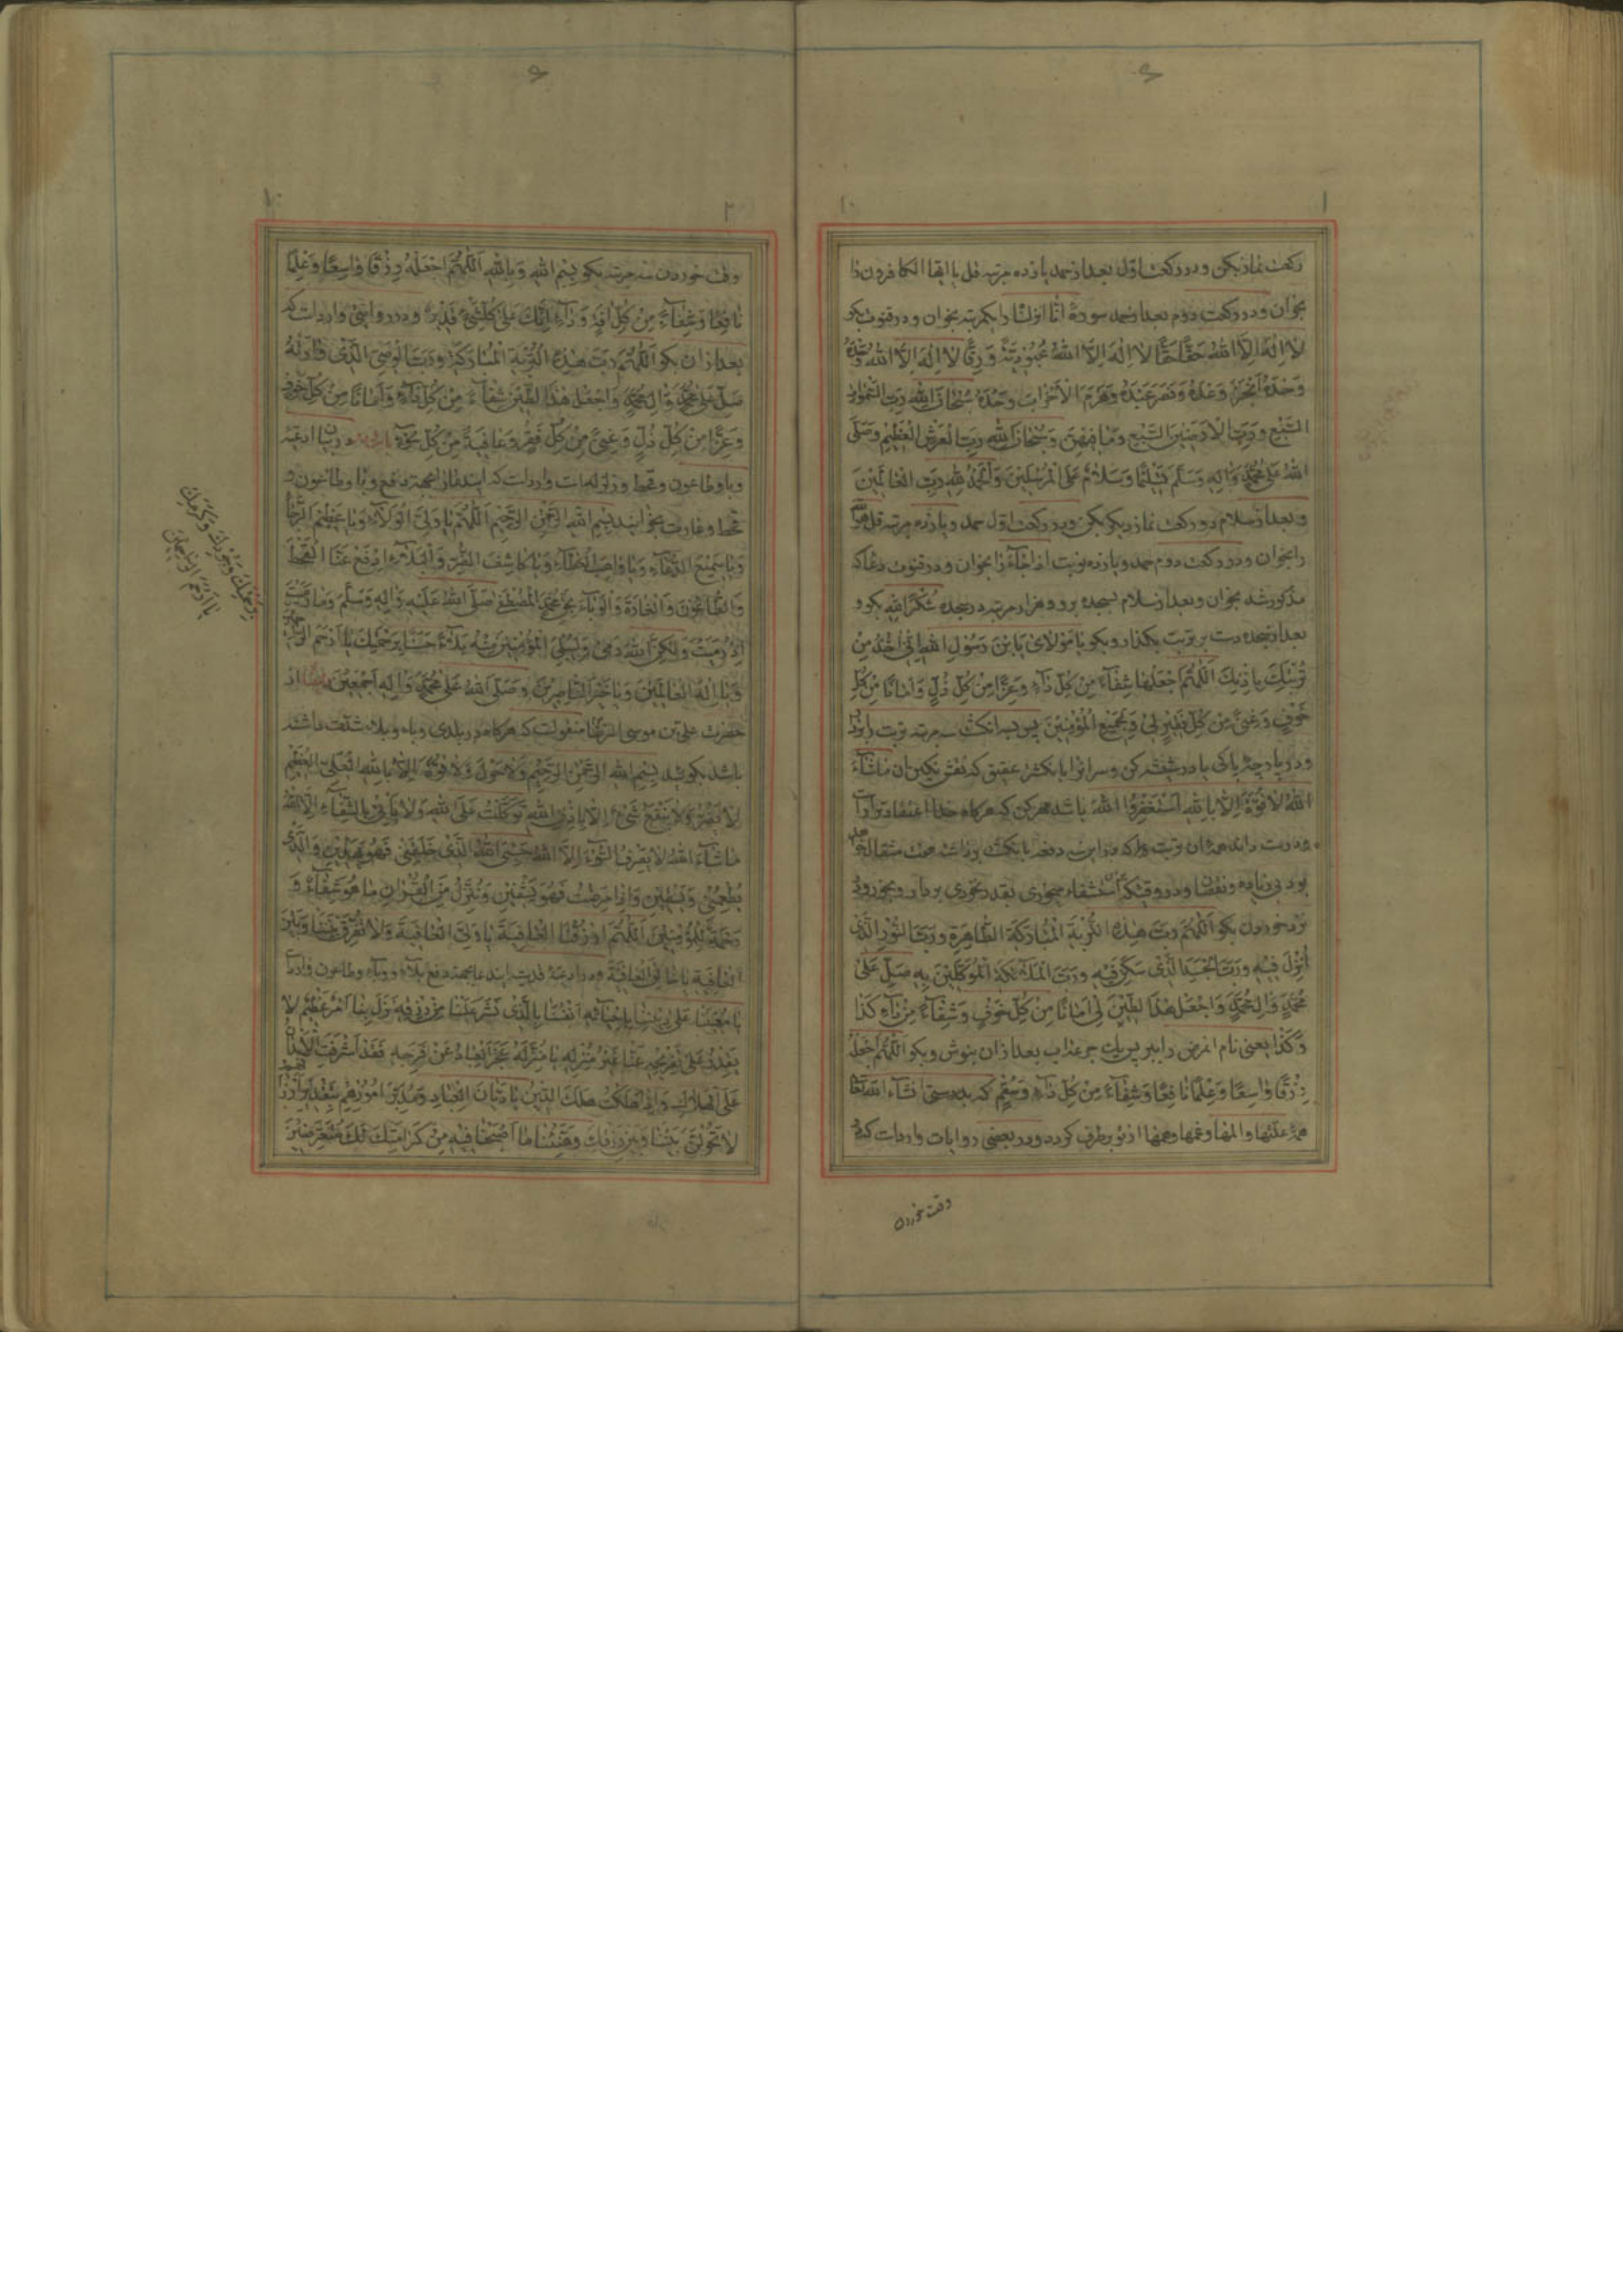 رکعت نماز بکن و در رکعت اول بعد از حمد یازده مرتبه قل یا ایها الکافرون را
بخوان و در رکعت دوم بعد از حمد سورهٔ انا انزلنا را یکمرتبه بخوان و در قنوت بکو
لا اِلهَ اِلاَّ اللهُ حَقًّا حَقًّا لا اِلهَ اِلاَّ اللهُ عُبُودِیَّةً وَ رِقًّا لا اِلهَ اِلاَّ اللهُ وَحْدَهُ
وَحْدَهُ اَنْجَزَ وَعْدَهُ وَنَصَرَ عَبْدَهُ وَهَزَمَ الْاَحْزابَ وَحْدَهُ سُبْحانَ اللهِ رَبِّ السَّمواتِ
السَّبْعِ وَرَبِّ الْاَرَضینَ السَّبْعِ وَما بَیْنَهُنَّ وَسُبْحانَ اللهِ رَبِّ الْعَرْشِ الْعَظیمِ وَصَلَّی
اللهُ عَلی مُحَمَّدٍ وَالِهِ وَسَلَّمَ تَسْلیمًا وَسَلامٌ عَلَی الْمُرْسَلینَ وَالْحَمْدُ لِلهِ رَبِّ الْعالَمینَ
و بعد از سلام دو رکعت نماز دیکر بکن و در رکعت اول حمد و یازده مرتبه قل هو الله
را بخوان و در رکعت دوم حمد و یازده نوبت اذا جاء را بخوان و در قنوت دعا که
مذکور شد بخوان و بعد از سلام بسجده برو و هزار مرتبه در سجده شُکْرًا لِلهِ بکو و
بعد از سجده دست بر تربت بکذار و بکو یا مَوْلایَ یَا بْنَ رَسُولِ اللهِ اِنّی اخُذُ مِنْ
تُرْبَتِکَ بِاِذْنِکَ اَللّهُمَّ اجْعَلْها شِفاءً مِنْ کُلِّ داءٍ وَعِزًّا مِنْ کُلِّ ذُلٍّ وَاَمانًا مِنْ کُلِّ
خَوْفٍ وَغِنیً مِنْ کُلِّ فَقْرٍ لی وَلِجَمیعِ الْمُؤْمِنینَ پس بسه انکشت سه مرتبه تربت را بردار
و در پارچه پاکی یا در شیشه کن و سر انرا بانکشتر عقیق که نقش نکین ان ماشاءَ
اللهُ لا قُوَّةَ اِلاّ بِاللهِ اَسْتَغْفِرُ اللهَ باشد مهر کن که هرکاه خدا اعتقاد ترا
بود بی زیاده و نقصان و در وقتیکه استشفاء میجوئی بقدر نخودی بردار و بخور و
نزد خوردن بکو اَللّهُمَّ رَبَّ هذِهِ التُّرْبَةِ الْمُبارَکَةِ الطّاهِرَةِ وَرَبَّ النُّورِ الَّذی
اُنْزِلَ فیهِ وَرَبَّ الْجَسَدِ الَّذی سَکَنَ فیهِ وَرَبَّ الْمَلائِکَةِ الْمُوَکَّلینَ بِهِ صَلِّ عَلی
مُحَمَّدٍ وَالِ مُحَمَّدٍ وَاجْعَلْ هذَا الطّینَ لی اَمانًا مِنْ کُلِّ خَوْفٍ وَشِفاءً مِنْ داءِ کَذا
وَکَذا یعنی نام انمرض را ببر پس یک جرعه اب بعد از ان بنوش و بکو اَللّهُمَّ اجْعَلْهُ
رِزْقًا واسِعًا وَعِلْمًا نافِعًا وَشِفاءً مِنْ کُلِّ داءٍ وَسُقْمٍ که بدرستی انشاء الله تعالی
همهٔ علتها و المها و غمها و همها از تو برطرف کردد و در بعضی روایات وارد است که در
وقت خوردن
وقت خوردن سه مرتبه بکو بِسْمِ اللهِ وَبِاللهِ اَللّهُمَّ اجْعَلْهُ رِزْقًا واسِعًا وَعِلْمًا
نافِعًا وَشِفاءً مِنْ کُلِّ افَةٍ وَداءٍ اِنَّکَ عَلی کُلِّ شَیْءٍ قَدیرٌ و در روایتی وارد است که
بعد از ان بکو اَللّهُمَّ رَبَّ هذِهِ التُّرْبَةِ الْمُبارَکَةِ وَرَبَّ الْوَصِیِّ الَّذی وارَتْهُ
صَلِّ عَلی مُحَمَّدٍ وَالِ مُحَمَّدٍ وَاجْعَلْ هذَا الطّینَ شِفاءً مِنْ کُلِّ داءٍ وَاَمانًا مِنْ کُلِّ خَوْفٍ
وَعِزًّا مِنْ کُلِّ ذُلٍّ وَغِنیً مِنْ کُلِّ فَقْرٍ وَعافِیَةً مِنْ کُلِّ سُوءٍ در بیان ادعیهٔ
وبا و طاعون و قحط و زلزله است وارد است که ایندعا را بجهة دفع وبا و طاعون و
قحط و غارت بخوانید بِسْمِ اللهِ الرَّحْمنِ الرَّحیمِ اَللّهُمَّ یا وَلِیَّ الْوَلاءِ وَیا عَظیمَ الرَّجاءِ
وَیا سَمیعَ الدُّعاءِ وَیا واهِبَ الْعَطاءِ وَیا کاشِفَ الضُّرِّ وَالْبَلاءِ اِدْفَعْ عَنَّا الْقَحْطَ
وَالطّاعُونَ وَالْغارَةَ وَالْوَباءَ بِحَقِّ مُحَمَّدٍ الْمُصْطَفی صَلَّی اللهُ عَلَیْهِ وَالِهِ وَسَلَّمَ وَما رَمَیْتَ
اِذْ رَمَیْتَ وَلکِنَّ اللهَ رَمی وَلِیُبْلِیَ الْمُؤْمِنینَ مِنْهُ بَلاءً حَسَنًا بِرَحْمَتِکَ یا اَرْحَمَ الرّاحِمینَ
وَیا اِلهَ الْعالَمینَ وَیا خَیْرَ النّاصِرینَ وَصَلَّی اللهُ عَلی مُحَمَّدٍ وَالِهِ اَجْمَعینَ از
حضرت علی بن موسی الرضا منقولست که هرکاه در بلدی وباء و بلاء شدت داشته
باشد بکوئید بِسْمِ اللهِ الرَّحْمنِ الرَّحیمِ وَلا حَوْلَ وَلا قُوَّةَ اِلاّ بِاللهِ الْعَلِیِّ الْعَظیمِ
لا یَضُرُّ وَلا یَنْفَعُ شَیْءٌ اِلاّ بِاِذْنِ اللهِ تَوَکَّلْتُ عَلَی اللهِ وَلا یَأْتی بِالشِّفاءِ اِلاَّ اللهُ
ماشاءَ اللهُ لا یَصْرِفُ السُّوءَ اِلاَّ اللهُ حَسْبِیَ اللهُ الَّذی خَلَقَنی فَهُوَ یَهْدینِ وَالَّذی
یُطْعِمُنی وَیَسْقینِ وَاِذا مَرِضْتُ فَهُوَ یَشْفینِ وَنُنَزِّلُ مِنَ الْقُرْانِ ما هُوَ شِفاءٌ وَ
رَحْمَةٌ لِلْمُؤْمِنینَ اَللّهُمَّ ارْزُقْنَا الْعافِیَةَ یا وَلِیَّ الْعافِیَةِ وَلا تُفَرِّقْ بَیْنَنا وَبَیْنَ
الْعافِیَةِ یا خالِقَ الْعافِیَةِ
لا تَحُولَنَّ بَیْنَنا وَبَیْنَ رِزْقِکَ
بِرَحْمَتِکَ وَبِجُودِکَ وَکَرَمِکَ
یا اَرْحَمَ الرّاحِمینَ